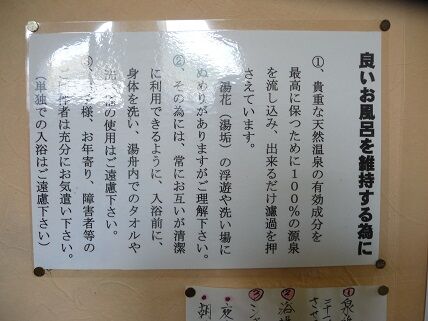 良いお風呂を維持する為に
①、貴重な天然温泉の有効成分を
最高に保つために１００％の源泉
を流し込み、出来るだけ濾過を押
さえています。
湯花（湯垢）の浮遊や洗い場に
ぬめりがありますがご理解下さい。
② その為には、常にお互いが清潔
に利用できるように、入浴前に、
身体を洗い、湯舟内でのタオルや
の使用はご遠慮下さい。
③、様、お年寄り、障害者等の
ご同伴者は充分にお気遣い下さい。
（単独での入浴はご遠慮下さい）
①
②浴
③シ
・夜
・朝